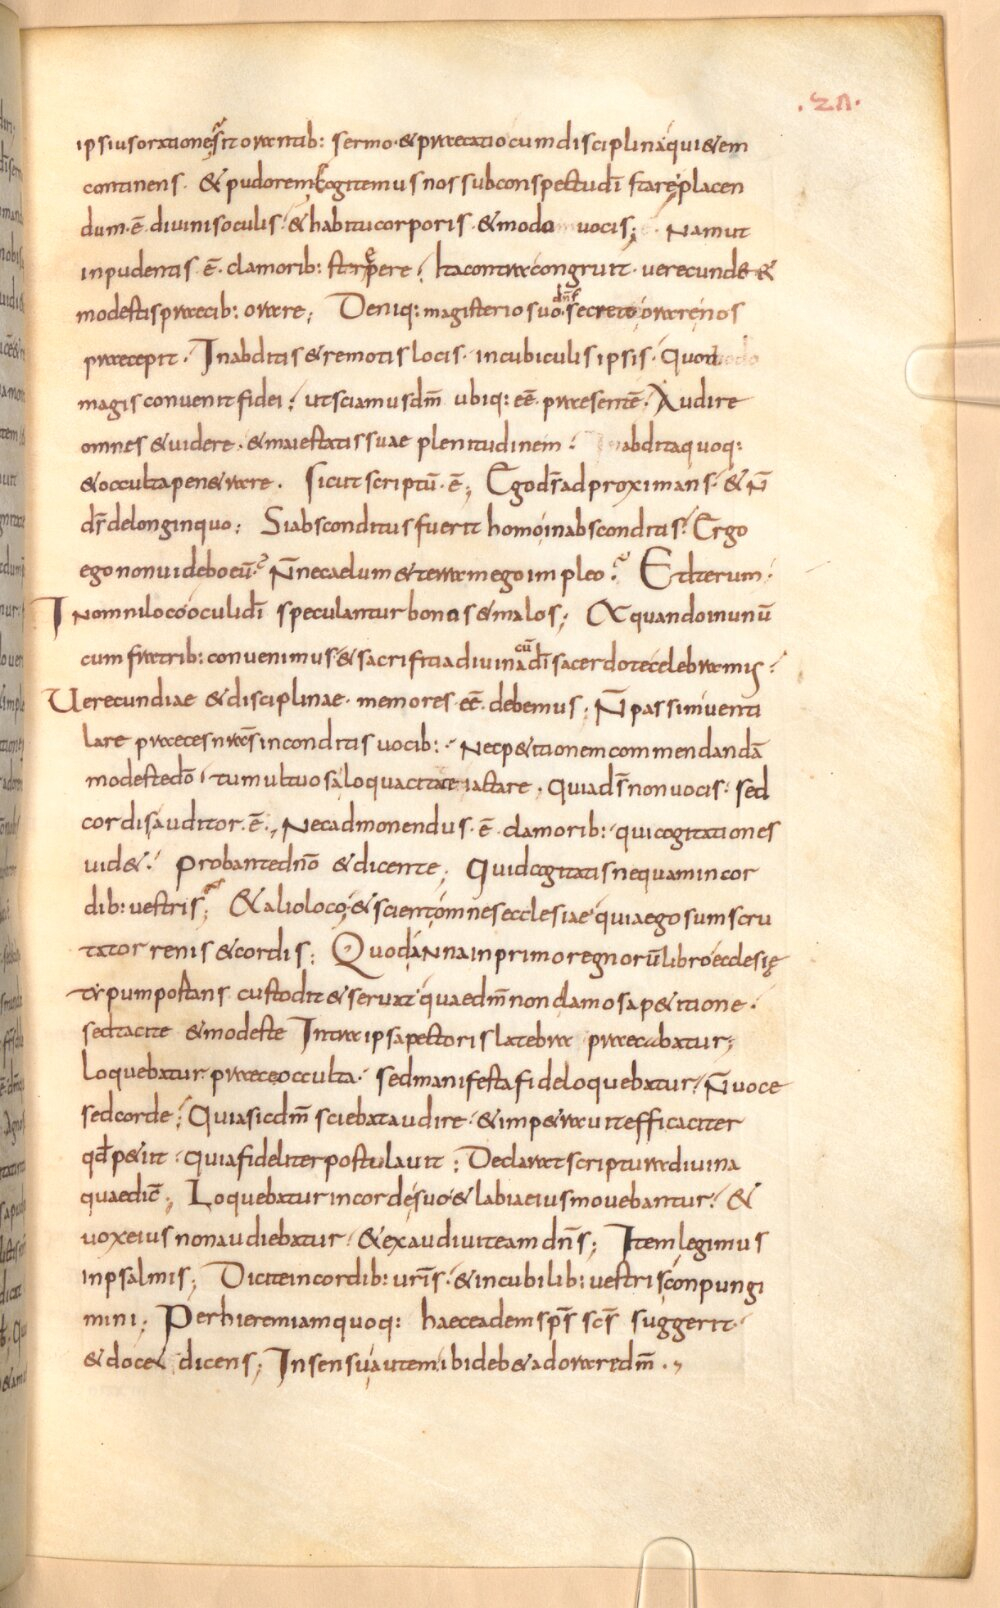 .21.
ipsius oratione sit orantib: sermo. & praecatio cum disciplina quietem
continens. & pudorem. Cogitemus nos sub conspectu dī stare placen
dum. ē. divinis oculis. & habitu corporis. & modo vocis; Nam ut
inpudentis ē. clamorib: strepere. Ita contra congruit. verecunde &
modestis praecib: orare; Deniq: magisterio suo dn̄s secreto orare nos
praecepit. In abditis & remotis locis. in cubiculis ipsis. Quod
magis convenit fidei; ut sciamus dm̄ ubiq: eē praesentē. Audire
omnes & videre. & maiestatis suae plenitudinem. In abdita quoq:
& occulta penetrare. Sicut scriptū. ē; Ego ds̄ adproximans. & N̄
ds̄ de longinquo; Si absconditus fuerit homo in absconditis. Ergo
ego non videbo eū. N̄ne caelum & terram ego impleo. Et iterum.
In omni loco oculi dī speculantur bonos & malos; & quando in unū
cum fratrib: convenimus. & sacrificia divina cū dī sacerdote celebramus.
Verecundiae & disciplinae. memores eē. debemus; N̄ passim venti
lare praeces nras̄ inconditis vocib:. Nec petitionem commendandā
modeste dō. tumultuosa loquacitate iactare. Quia ds̄ non vocis. sed
cordis auditor. ē., Nec admonendus. ē clamorib: qui cogitationes
videt. Probante dn̄o & dicente; Quid cogitatis nequam in cor
dib: vestris; & alio loco; & scient omnes ecclesiae quia ego sum scru
tator renis & cordis; Quod anna in primo regnorū libro ecclesię
typum portans custodit & servat quae dm̄ non clamosa petitione.
sed tacite & modeste Intra ipsa pectoris latebra praecabatur;
loquebatur praece occulta. sed manifesta fide loquebatur. N̄ voce
sed corde; Quia sic dm̄ sciebat audire. & impetravit efficaciter
qđ petiit. quia fideliter postulavit; Declarat scriptura divina
quae dic̄; Loquebatur in corde suo & labia eius movebantur. &
vox eius non audiebatur. & exaudivit eam dn̄s; Item legimus
in psalmis; Dicite in cordib: vr̄is. & in cubilib: vestris conpungi
mini; Per hieremiam quoq: haec eadem sps̄ scs̄ suggerit.
& docet dicens; In sensu autem ibi debet adorare dm̄.,